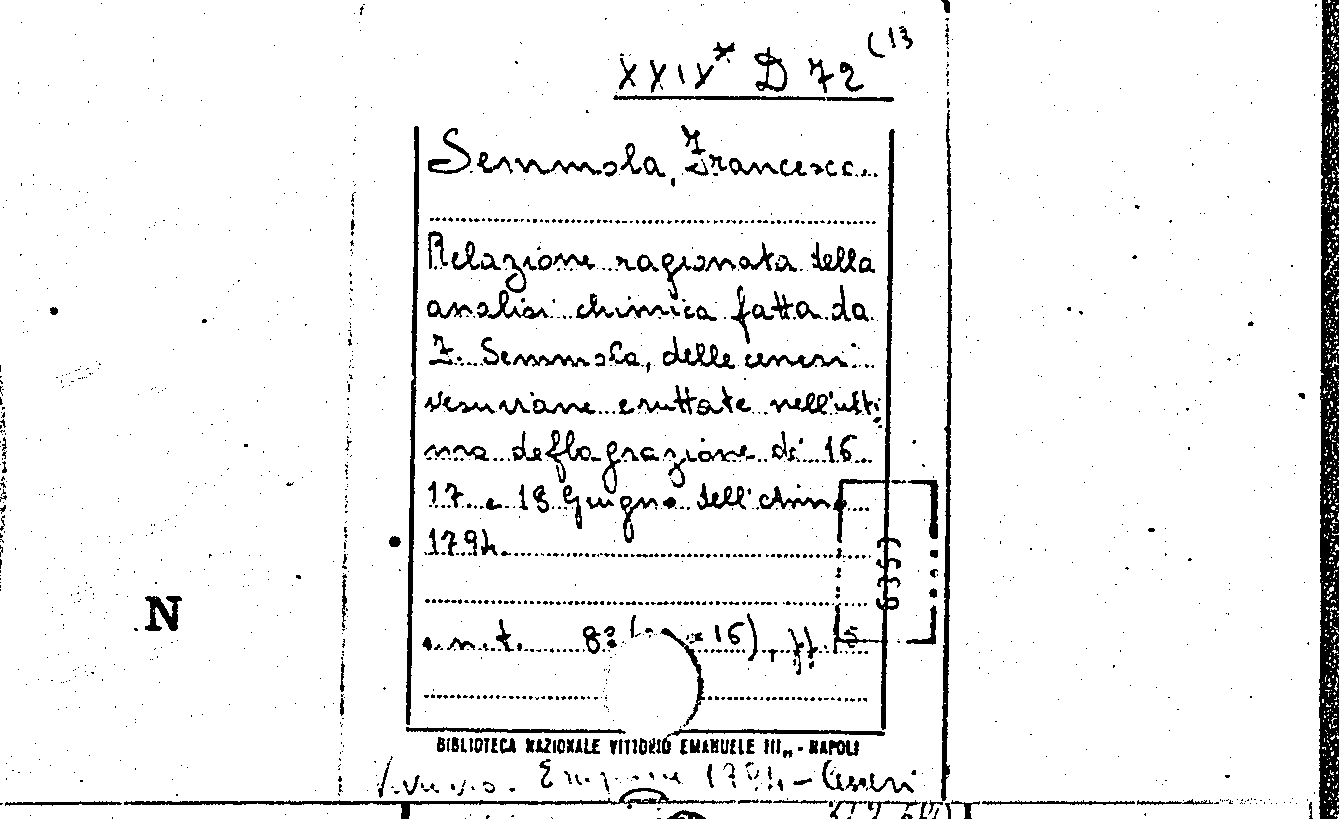 XXIX* D 72 (13
Semmola, Francesco.
Relazione ragionata della
analisi chimica fatta da
F. Semmola, delle ceneri
vesuviane eruttate nell'ulti
ma deflagrazione de' 16
17 e 18 Giugno dell'anno
1794.
s.n.t. 8° 16), ff. 15
6359
N
BIBLIOTECA NAZIONALE VITTORIO EMANUELE III,, - NAPOLI
Vesuvio. Eruzione 1794 - Ceneri